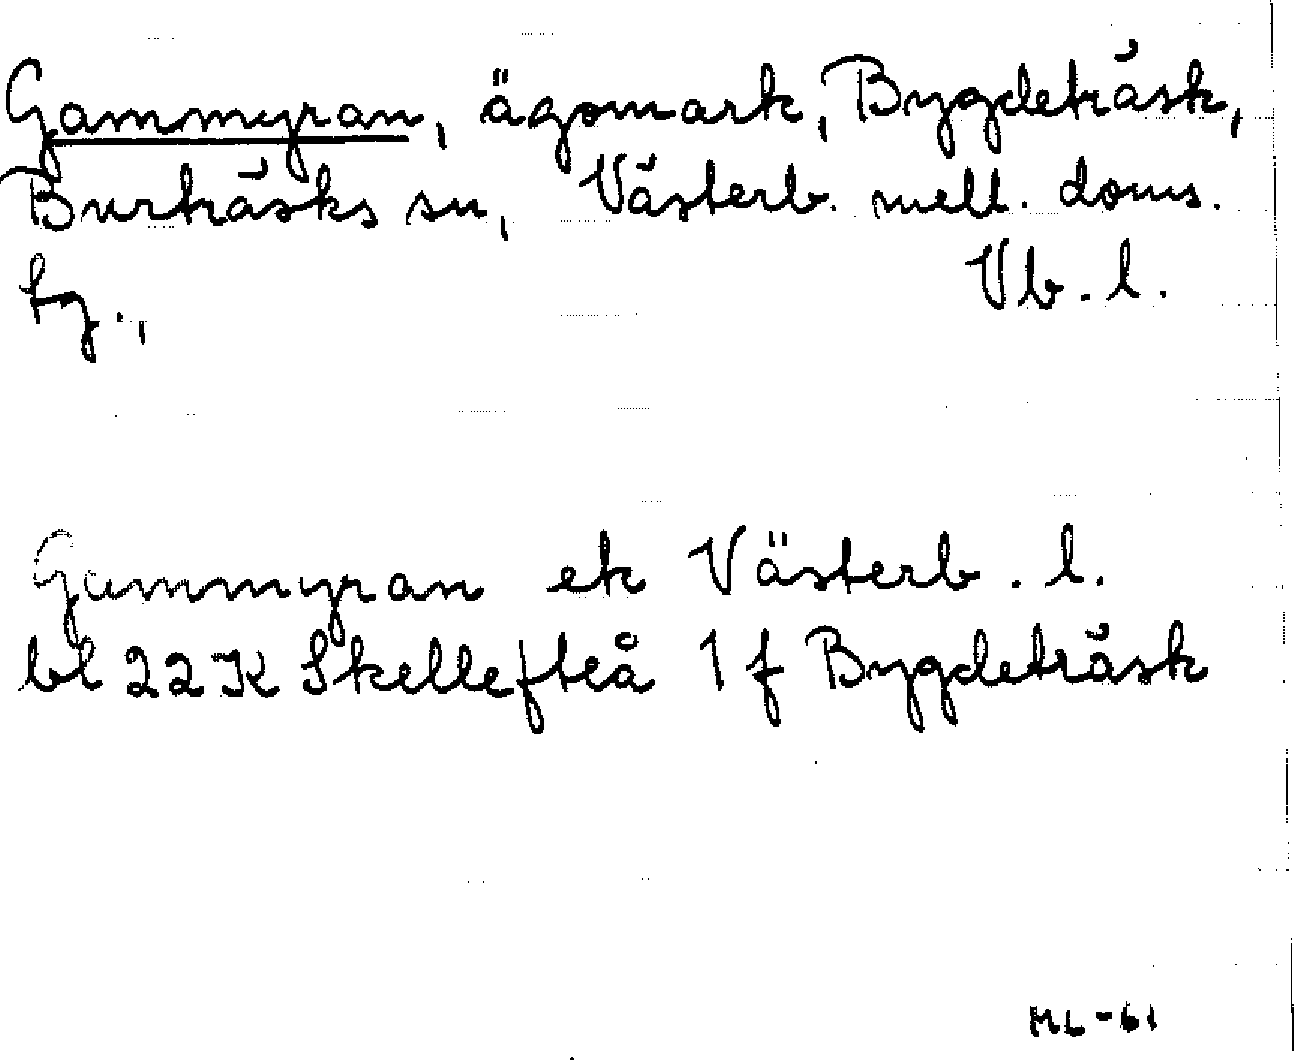 Gammyran, ägomark, Bygdeträsk,
Burträsks sn, Västerb. mell. doms.
tg., Vb. l.
Gammyran ek Västerb. l.
bl 22K Skellefteå 1 f Bygdeträsk
ML-61